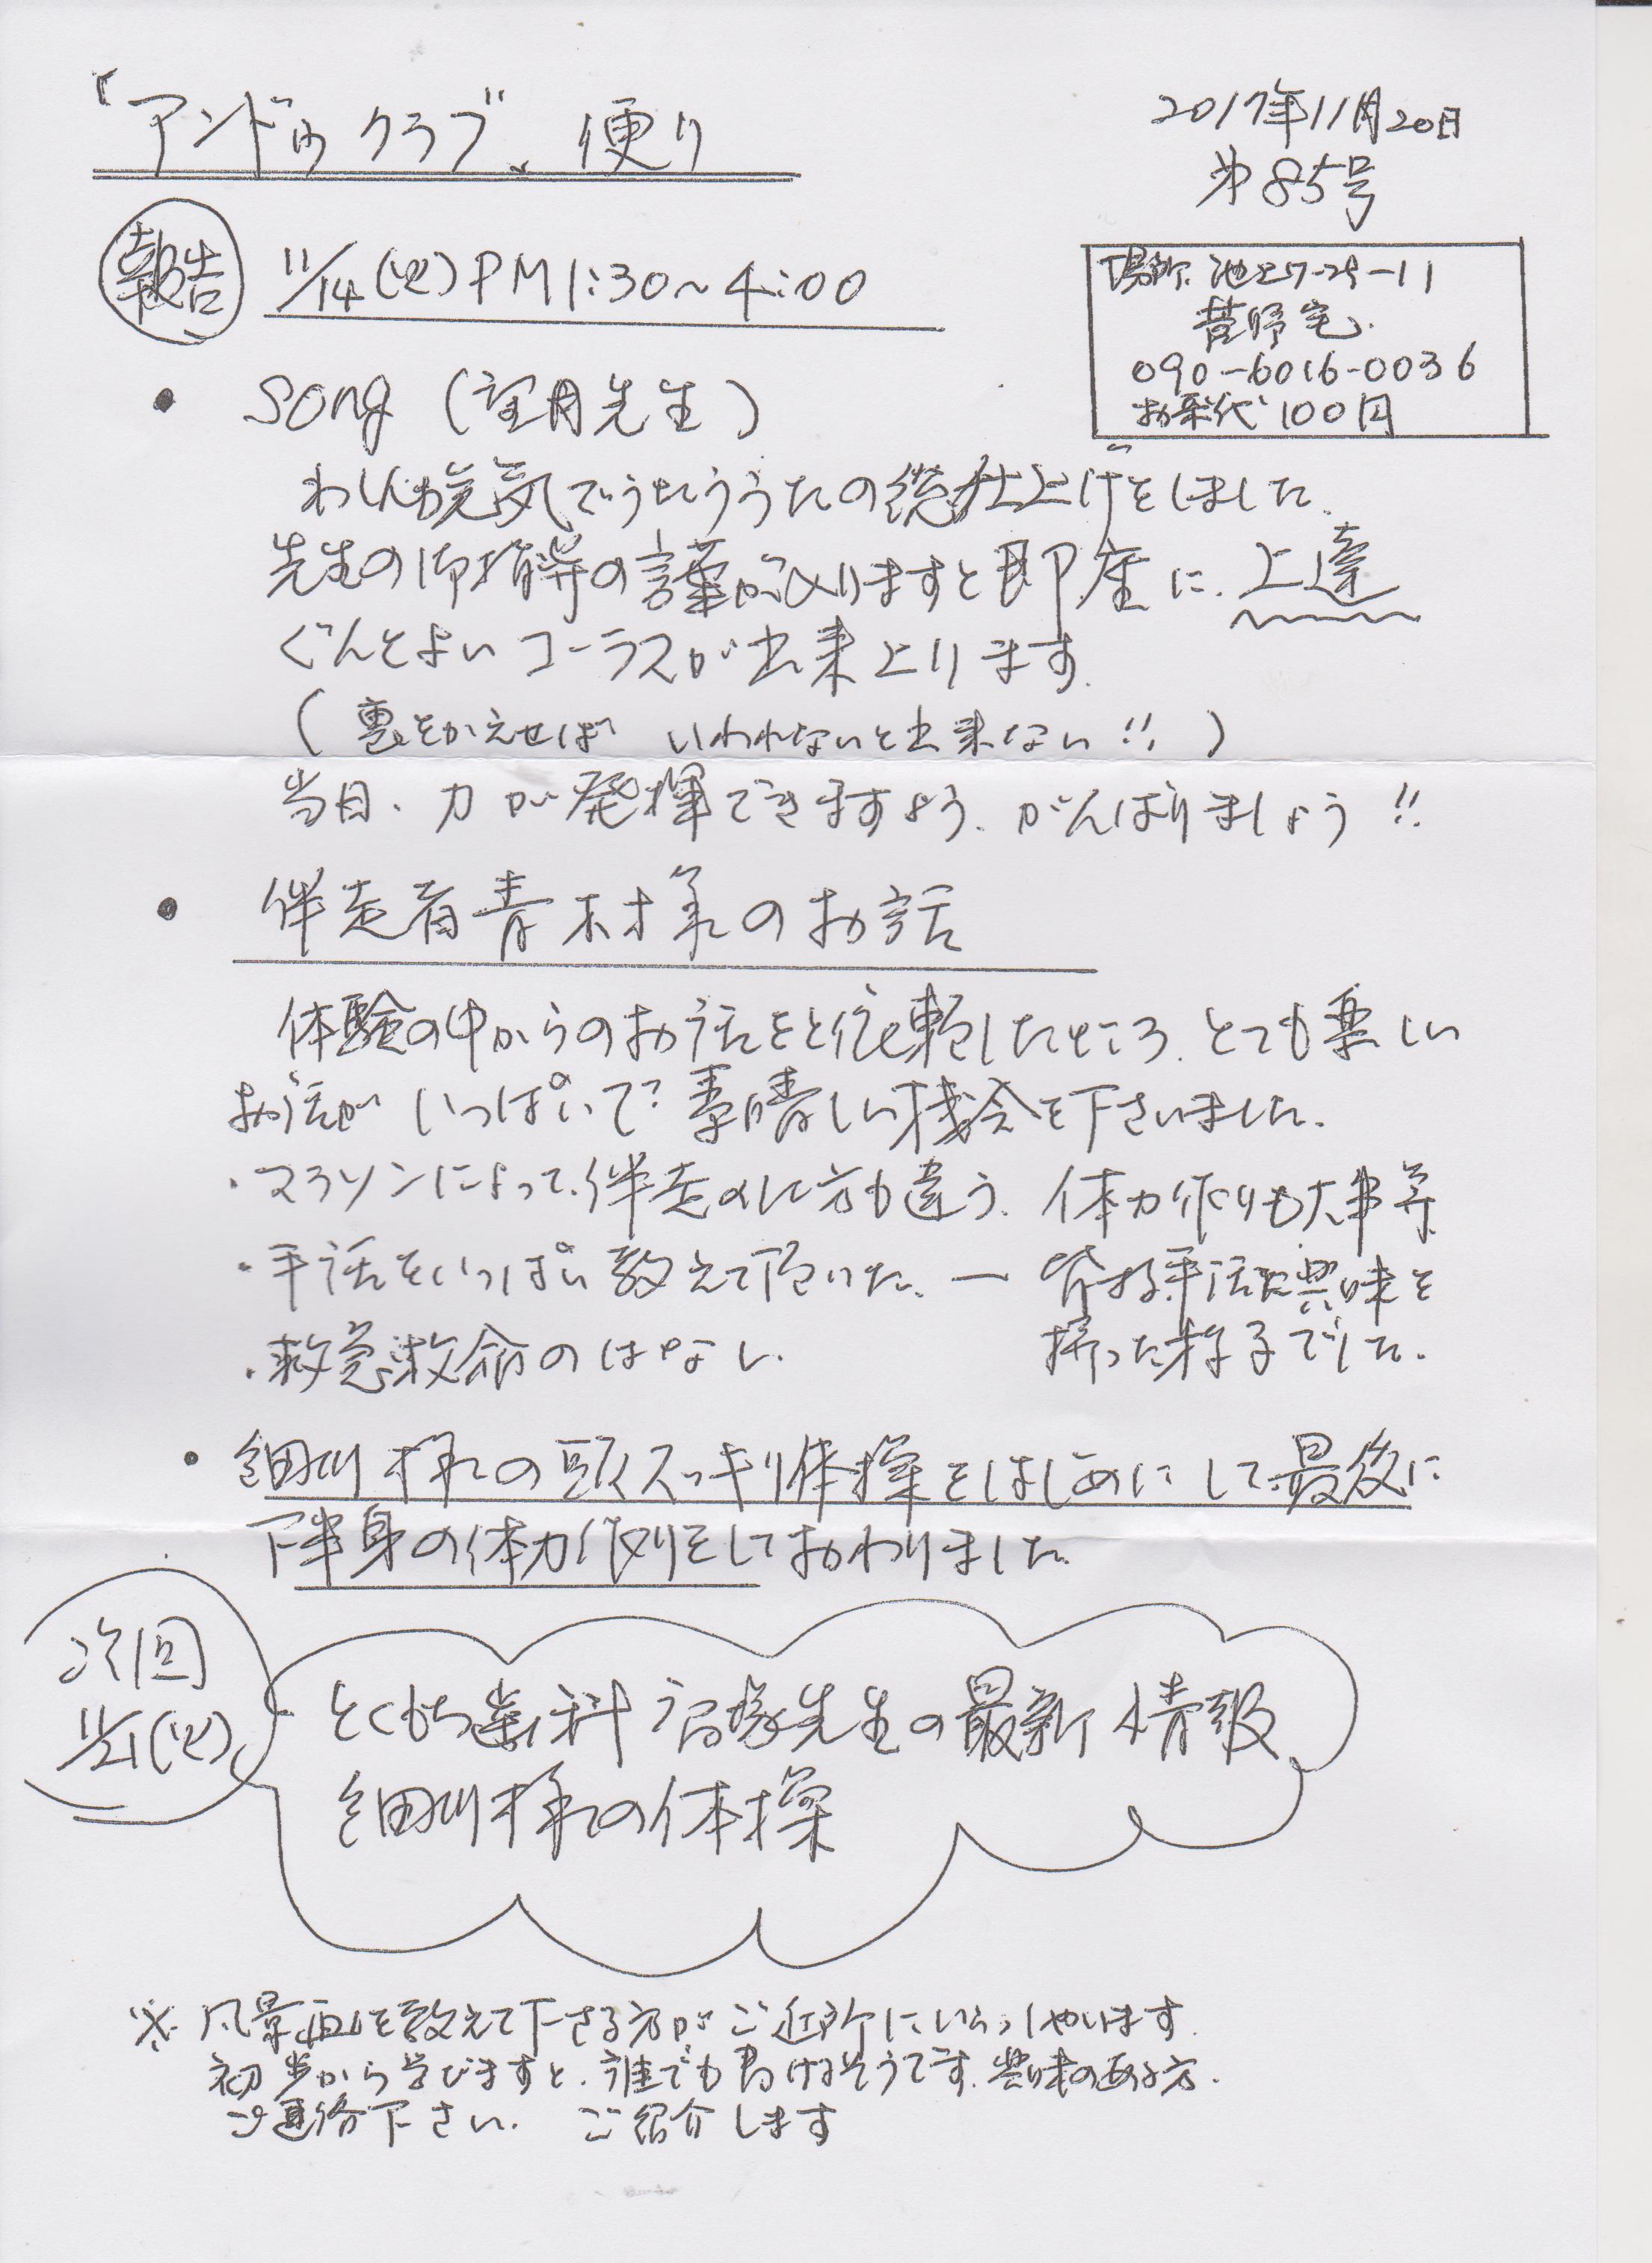 「アンドゥクラブ」便り
2017年11月20日
第85号
報告 11/14(火)PM1:30~4:00
場所.池上7-25-11
菅野宅.
090-6016-0036
お茶代100円
• song (望月先生)
でうたううたの総仕上げをしました.
先生の御指導の言葉が入りますと即座に.上達
ぐんとよいコーラスが出来上ります.
(裏をかえせば いわれないと出来ない!!)
当日.力が発揮できますよう.がんばりましょう!!
• 伴走者青木様のお話
体験の中からのお話をと依頼したところ.とても楽しい
お話がいっぱいで?素晴しい機会を下さいました.
・マラソンによって.伴走の仕方も違う.体力作りも大事等
・手話をいっぱい教えて頂いた.ー皆様手話に興味を
持った様子でした.
・救急救命のはなし.
• 細川様の頭スッキリ体操をはじめにして.最後に
下半身の体力作りをしておわりました.
次回
11/21(火)
とくもち歯科 先生の最新情報
細川様の体操
※.風景画を教えて下さる方がご近所にいらっしゃいます.
初歩から学びますと.誰でも書けるそうです.興味のある方.
ご連絡下さい. ご紹介します